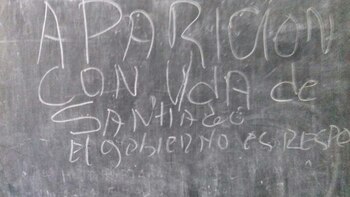 APARICION
CON VIDA de
SANTIAGO
El gobierno es RESPO